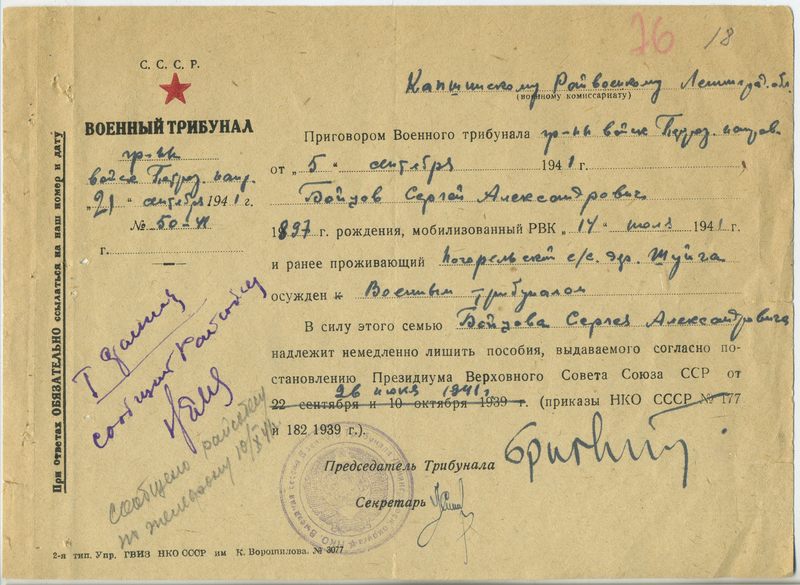 76 18
С. С. С. Р.
ВОЕННЫЙ ТРИБУНАЛ
гр-пы
войск Петроз. напр.
„21" сентября 1941 г.
№ 50-41
г.
При ответах ОБЯЗАТЕЛЬНО ссылаться на наш номер и дату
Капшинскому Райвоенкому Ленинград. обл.
(военному комиссариату)
Приговором Военного трибунала гр-пы войск Петроз. направ.
от „5" сентября 1941 г.
Бойцов Сергей Александрович
1897 г. рождения, мобилизованный РВК „14" июля 1941 г.
и ранее проживающий с/с. дер. Шуйга
осужден к Военным трибуналом
В силу этого семью Бойцова Сергея Александровича
надлежит немедленно лишить пособия, выдаваемого согласно по-
становлению Президиума Верховного Совета Союза ССР от
26 июня 1941 г
22 сентября и 10 октября 1939 г. (приказы НКО СССР № 177
и 182 1939 г.).
Председатель Трибунала
Секретарь
сообщить
сообщено райсобесу
по телефону
2-я тип. Упр. ГВИЗ НКО СССР им К. Ворошилова. № 3077